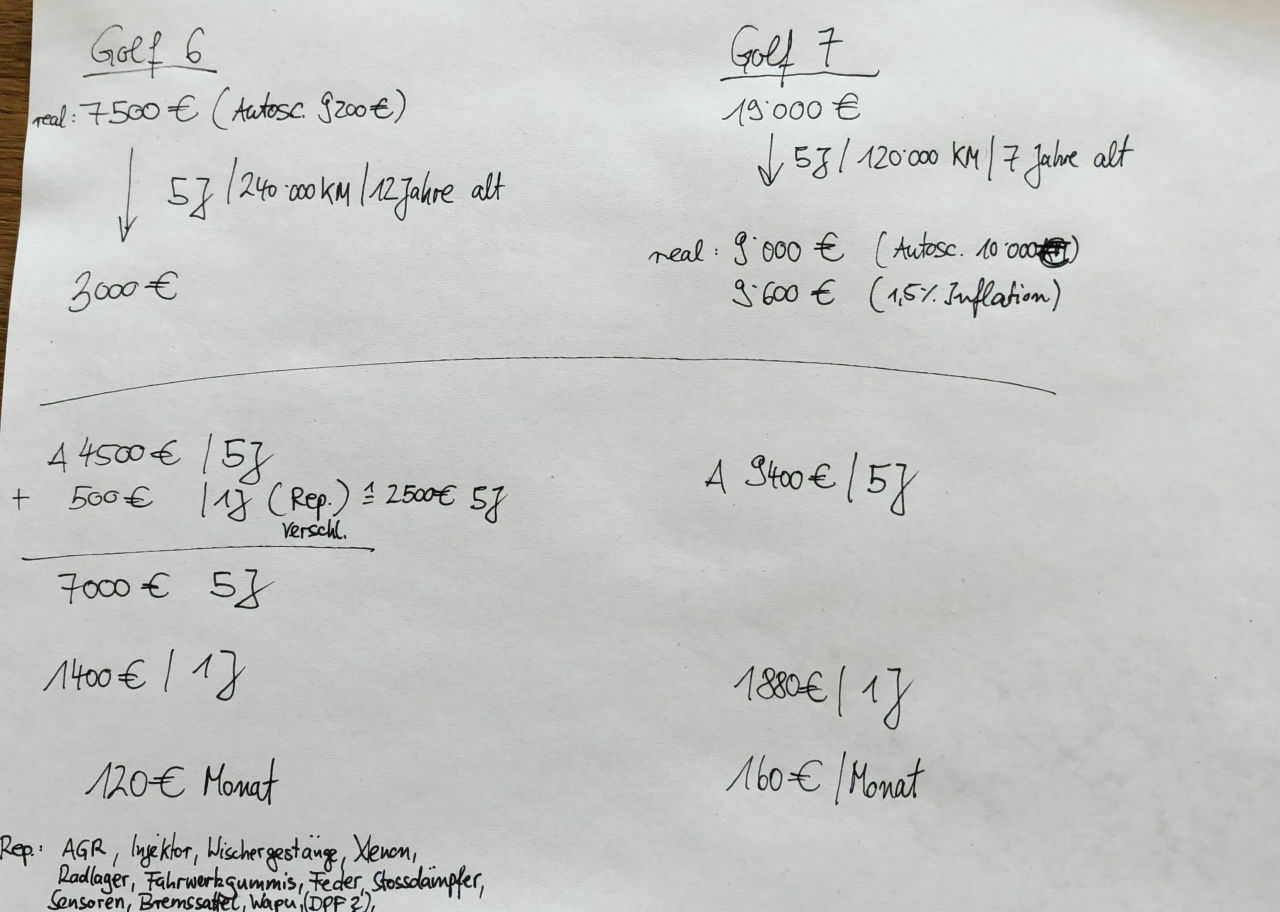 Golf 6
real: 7500 € (Autosc. 9200€)
5J / 240·000 KM / 12 Jahre alt
3000 €
Golf 7
19·000 €
5J / 120·000 KM / 7 Jahre alt
real: 9·000 € (Autosc. 10·000)
9·600 € (1,5% Inflation)
Δ 4500 € / 5J
+ 500 € / 1J (Rep.) ≙ 2500€ 5J
Verschl.
7000 € 5J
1400 € / 1J
120 € Monat
Δ 9400 € / 5J
1880€ / 1J
160 € / Monat
Rep.: AGR, Injektor, Wischergestänge, Xenon,
Radlager, Fahrwerksgummis, Feder, Stossdämpfer,
Sensoren, Bremssattel, Wapu, (DPF?),